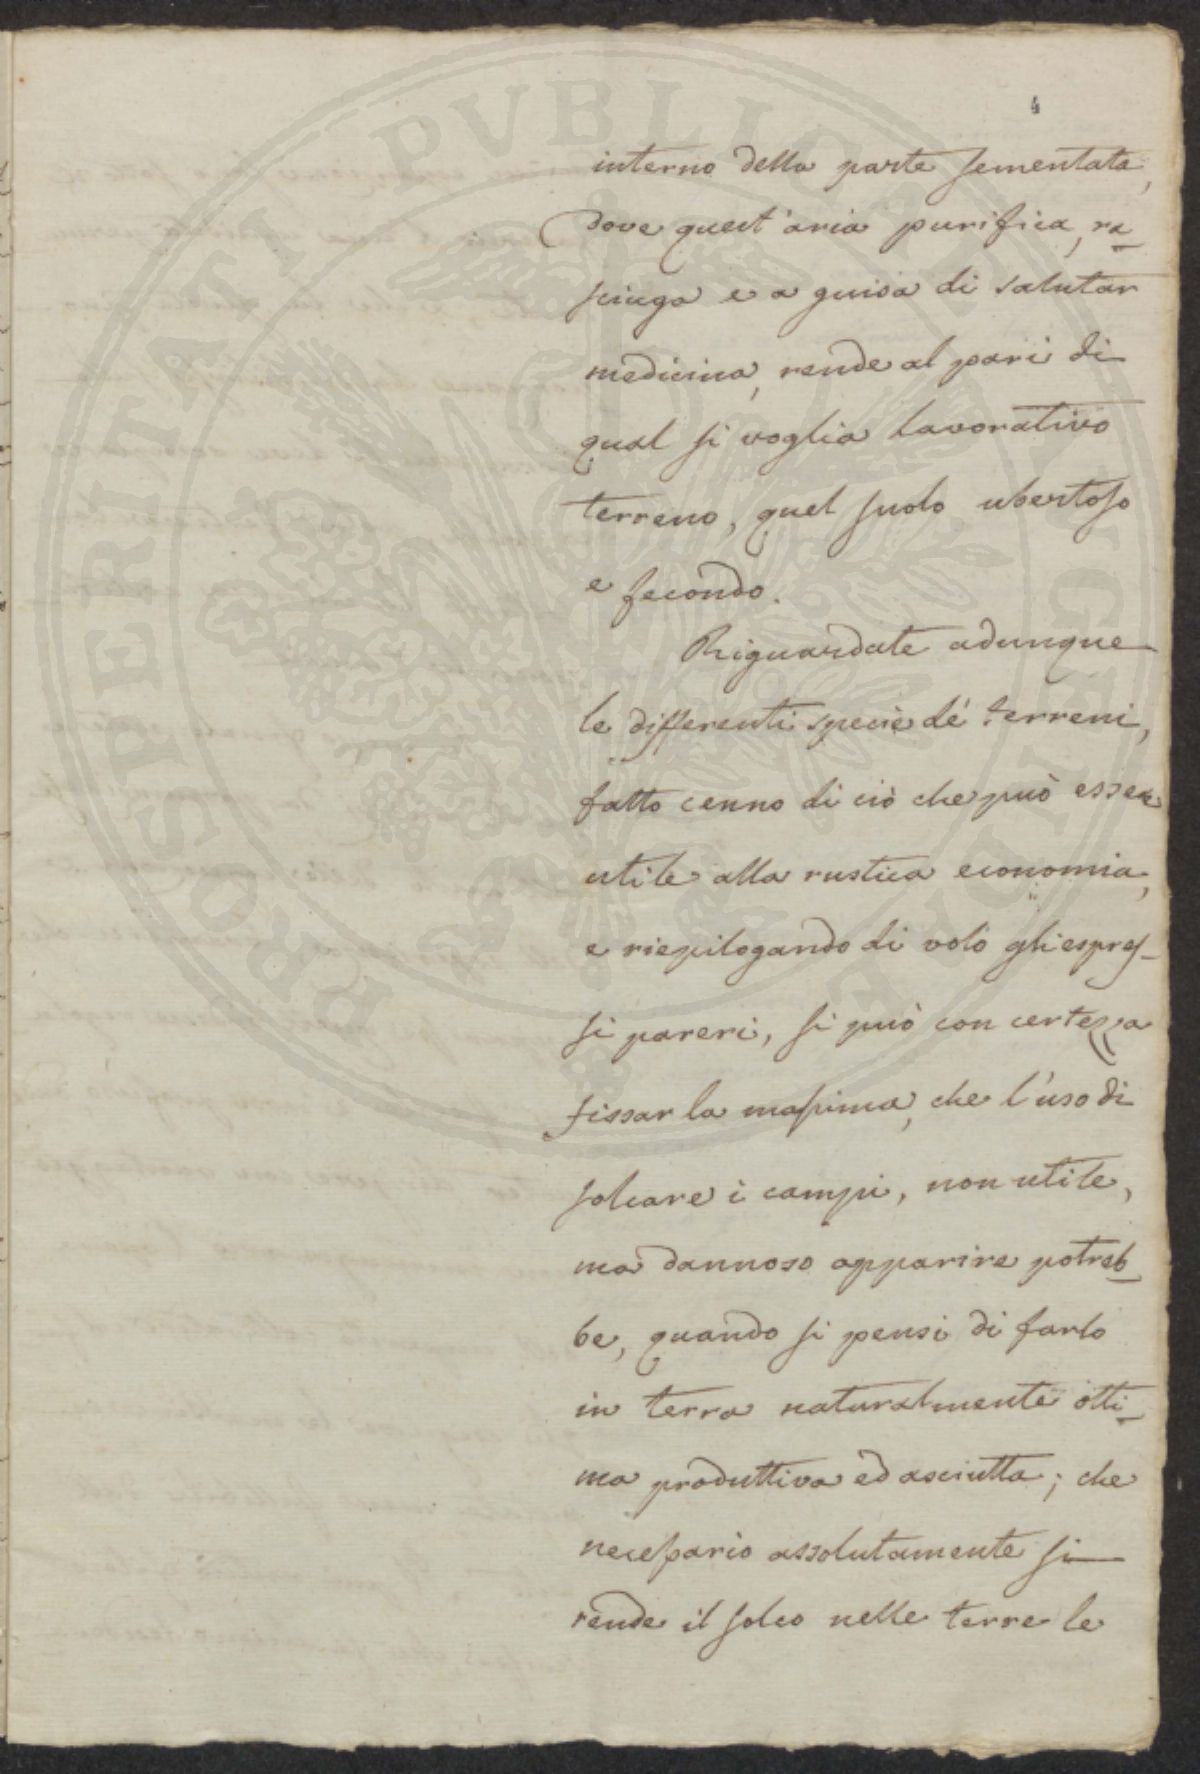 4
interno della parte sementata,
dove quest'aria purifica, ra-
sciuga e a guisa di salutar
medicina, rende al pari di
qual si voglia lavorativo
terreno, quel suolo ubertoso
e fecondo.
Riguardate adunque
le differenti specie de' terreni,
fatto cenno di ciò che può essere
utile alla rustica economia,
e riepilogando di volo gli espres-
si pareri, si può con certezza
fissar la massima, che l'uso di
solcare i campi, non utile,
ma dannoso apparire potreb-
be, quando si pensi di farlo
in terra naturalmente otti-
ma produttiva ed asciutta; che
necessario assolutamente si
rende il solco nelle terre le
PROSPERITATI PVBLICAE AVGENDAE